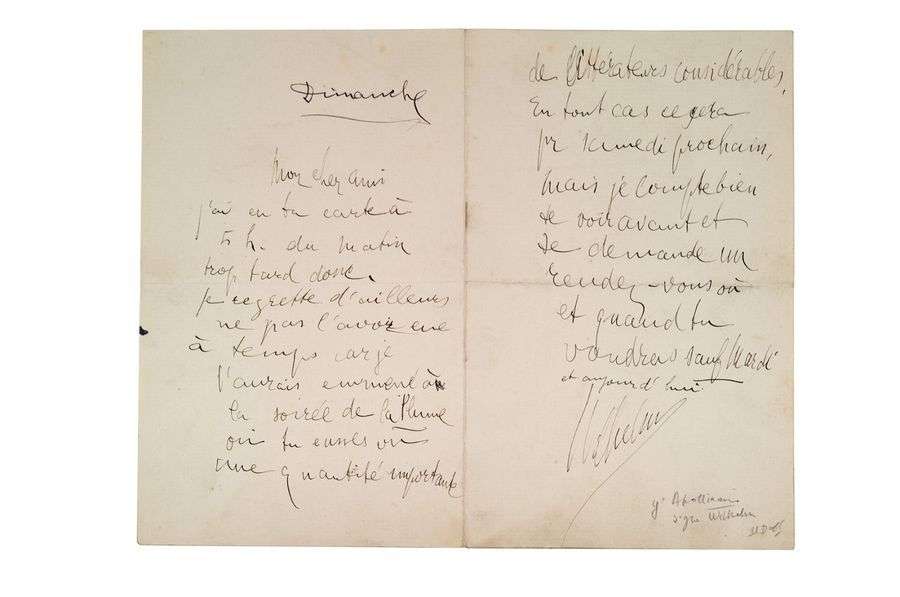 Dimanche
Mon cher ami
j'ai eu ta carte à
5 h. du matin
trop tard donc.
je regrette d'ailleurs
ne pas l'avoir eue
à temps car je
t'aurais emmené à
la soirée de la Plume
où tu eusses vu
une quantité importante
de littérateurs considérables,
En tout cas ce sera
pr samedi prochain,
mais je compte bien
te voir avant et
te demande un
rendez-vous où
et quand tu
voudras sauf Mardi
et aujourd'hui
Wilhelm
Apollinaire
signe Wilhelm